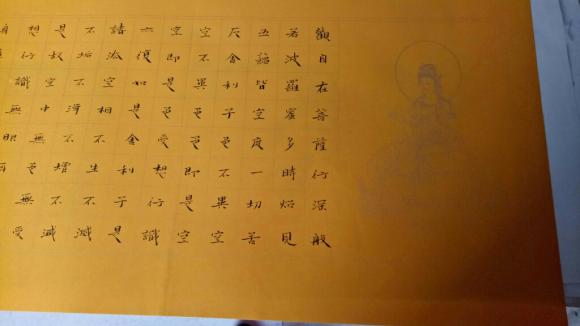 觀自在菩薩行深般
若波羅蜜多時炤見
五蘊皆空度一切苦
厄舍利子色不異空
空不異色色即是空
空即是色受想行識
亦復如是舍利子是
諸法空相不生不滅
不垢不淨不增不減
是故空中無色無受
想行識無眼